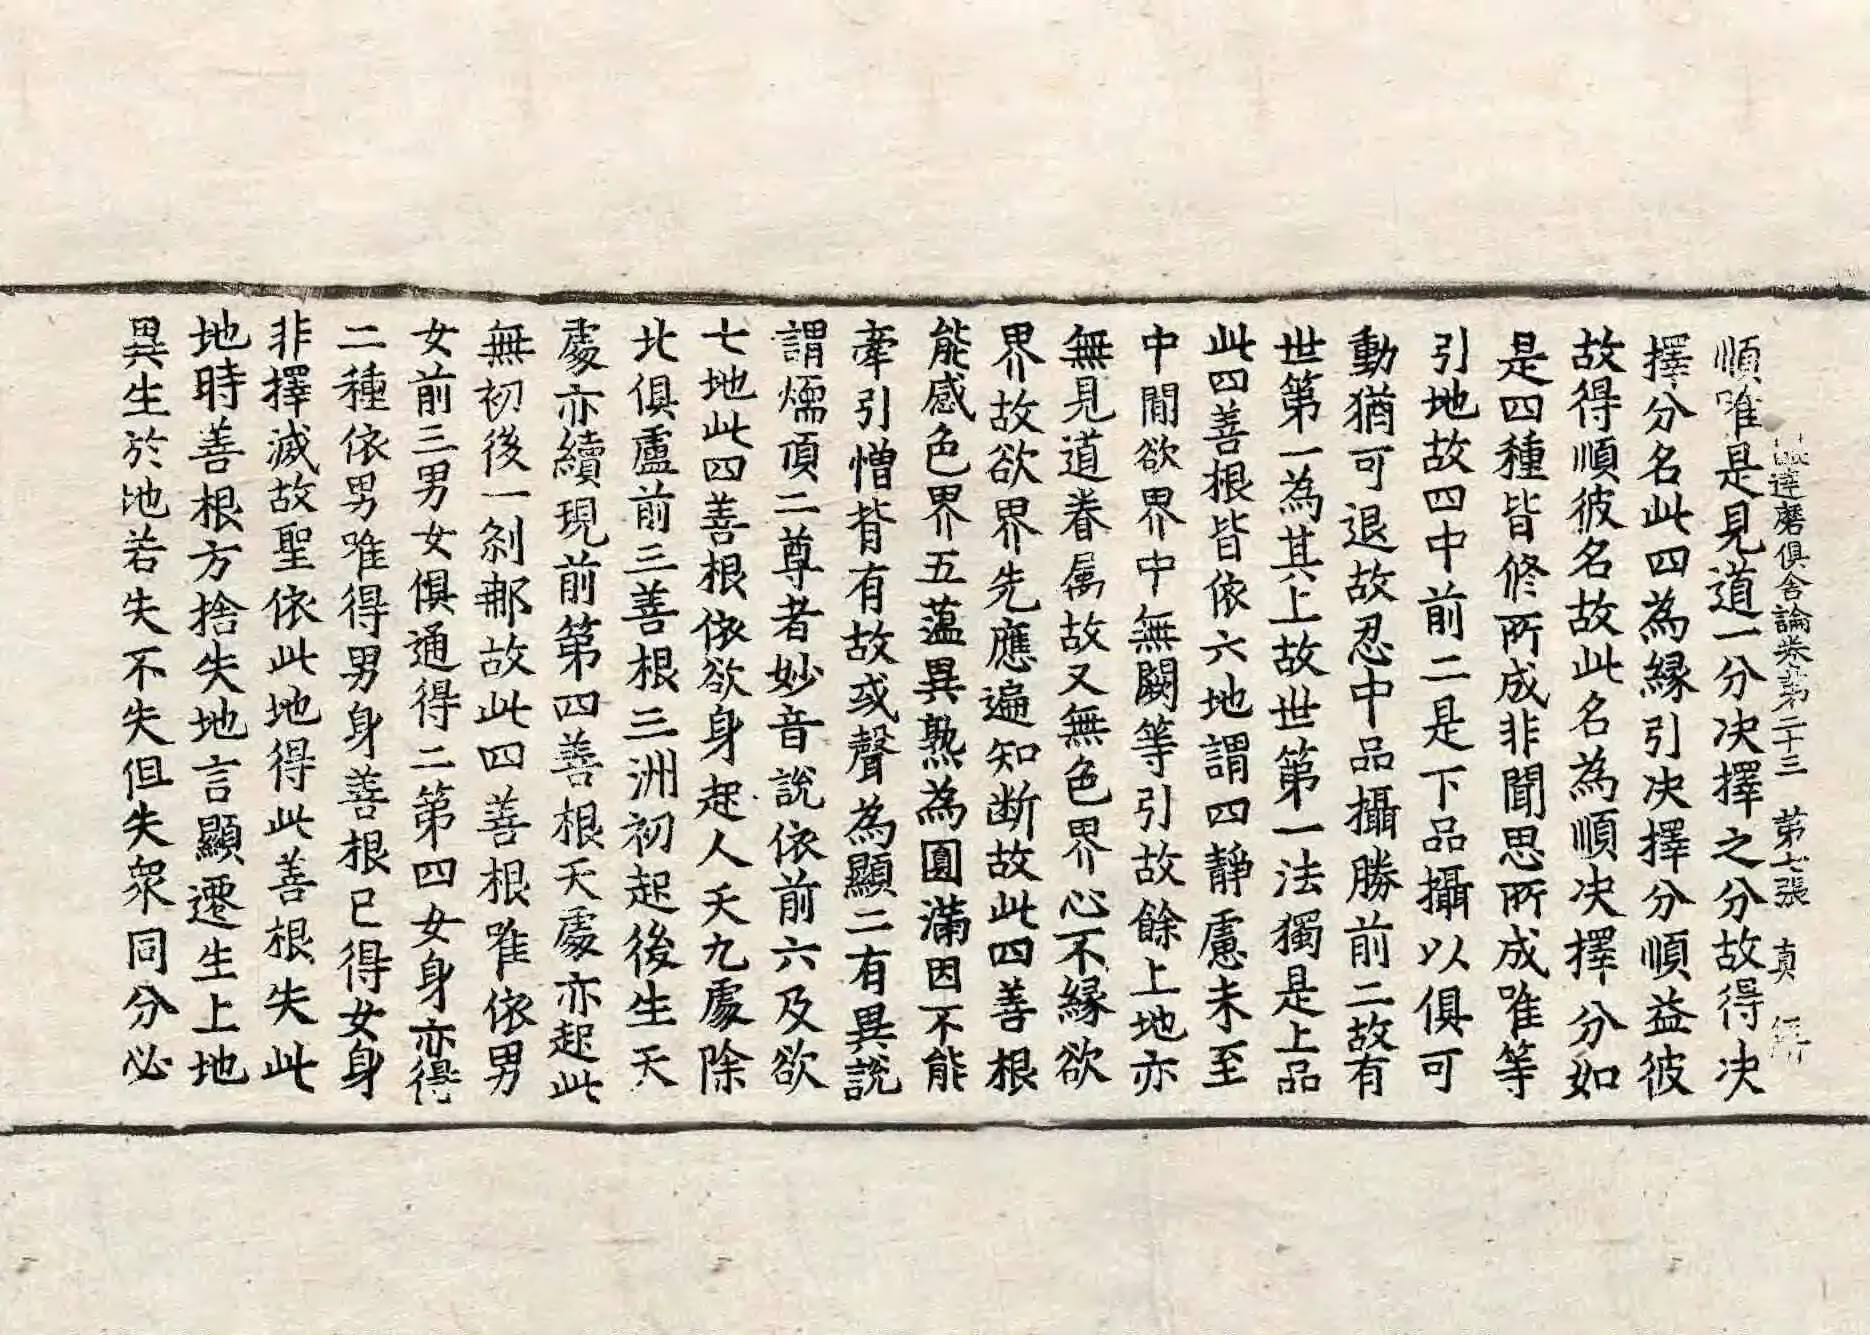 達磨俱舍論卷第二十三 第七張 真
順唯是見道一分决擇之分故得决
擇分名此四為縁引决擇分順益彼
故得順彼名故此名為順决擇分如
是四種皆修所成非聞思所成唯等
引地故四中前二是下品攝以俱可
動猶可退故忍中品攝勝前二故有
世第一為其上故世第一法獨是上品
此四善根皆依六地謂四靜慮未至
中閒欲界中無闕等引故餘上地亦
無見道眷属故又無色界心不縁欲
界故欲界先應遍知断故此四善根
能感色界五蕰異熟為圓滿因不能
牽引憎背有故或聲為顯二有異說
謂煗頂二尊者妙音說依前六及欲
七地此四善根依欲身起人天九處除
北俱盧前三善根三洲初起後生天
處亦續現前第四善根天處亦起此
無初後一剎那故此四善根唯依男
女前三男女俱通得二第四女身亦得
二種依男唯得男身善根已得女身
非擇滅故聖依此地得此善根失此
地時善根方捨失地言顯遷生上地
異生於地若失不失但失衆同分必